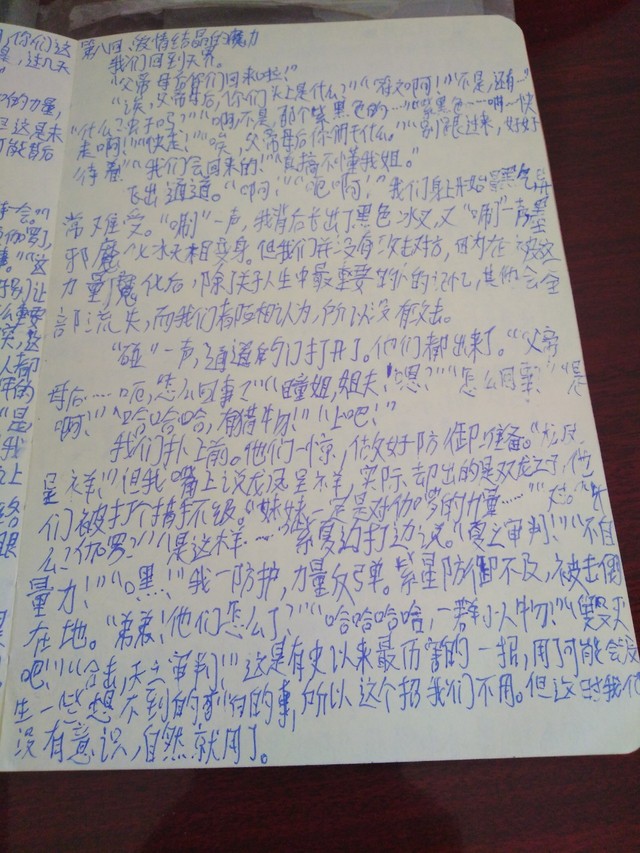 第八回 爱情结晶的魔力
我们回到天界。
"父帝母后你们回来啦!"
"诶,父帝母后,你们头上是什么?""符文啊!""不是,还有…"
"什么?虫子吗?""啊,不是,那个紫黑色的……""紫黑色……啊~快
走啊!""快走!""唉,父帝母后你们干什么。""别跟过来,好好
待着""我们会回来的!""真搞不懂我姐。"
飞出通道。"啊!""吧啊!"我们身上开始冒黑气,异
常难受。"唰"一声,我背后长出了黑色冰叉,又"唰"一声,墨
邪魔火冰天相变身。但我们并没有攻击对方,因为在被这
力量魔化后,除了关于人生中最重要的人的记忆,其他会全
部流失,而我们都互相认为,所以没有攻击。
"碰"一声,通道的门打开了。他们都出来了。"父帝
母后……呃,怎么回事?""瞳姐,姐夫!嗯?""怎么回事!""是
啊!""哈哈哈,有猎物!""上吧!"
我们扑上前。他们一惊,做好防御准备。"龙凤
呈祥!"但我嘴上说龙凤呈祥,实际却出的是双龙之子,他
们被打个措手不及。"妹妹一定是对伽罗的力量……""对。""什
么?伽罗?""是这样……"紫夏边打边说。"真之审判!""不自
量力!""嘿!"我一防护,力量反弹。紫星防御不及,被击倒
在地。"弟弟!他们怎么了?""哈哈哈哈,一群小人物!""毁灭
吧!""合击,天之审判!"这是有史以来最厉害的一招,用了可能会发
生一些想不到的事,所以这个招我们不用。但这时我们
没有意识,自然就用了。